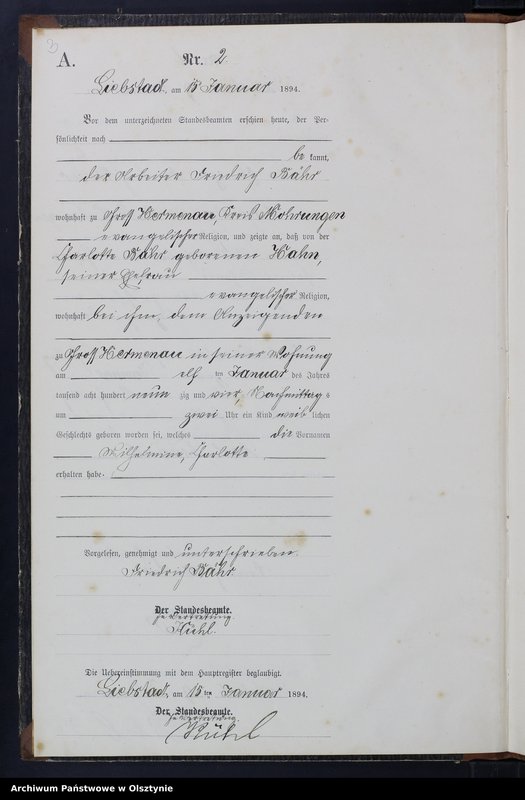 3
A.
Nr. 2
Liebstadt, am 15 Januar 1894.
Vor dem unterzeichneten Standesbeamten erschien heute, der Per-
sönlichkeit nach
be kannt,
der Arbeiter Friedrich Bähr
wohnhaft zu Gross Hermenau, Kreis Mohrungen
evangelischer Religion, und zeigte an, daß von der
Charlotte Bähr geborenen Hahn,
seiner Ehefrau
evangelischer Religion,
wohnhaft bei ihm, dem Anzeigenden
zu Gross Hermenau in seiner Wohnung
am elf ten Januar des Jahres
tausend acht hundert neun zig und vier, Nachmittag s
um zwei Uhr ein Kind weib lichen
Geschlechts geboren worden sei, welches die Vornamen
Wilhelmine, Charlotte
erhalten habe.
Vorgelesen, genehmigt und unterschrieben
Friedrich Bähr
Der Standesbeamte.
in Vertretung.
Kühl.
Die Uebereinstimmung mit dem Hauptregister beglaubigt.
Liebstadt, am 15 ten Januar 1894.
Der Standesbeamte.
in Vertretung.
Kühl
Archiwum Państwowe w Olsztynie